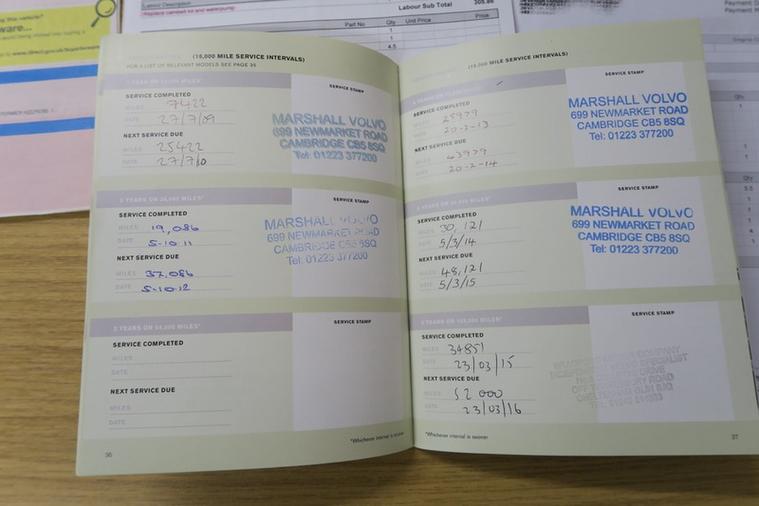 Labour Description
Replace cambelt kit and waterpump
Labour Sub Total 305.86
Part No Qty Unit Price Price
1
1
4.5
(18,000 MILE SERVICE INTERVALS)
FOR A LIST OF RELEVANT MODELS SEE PAGE 35
SERVICE COMPLETED
MILES 7422
DATE 27/7/09
NEXT SERVICE DUE
MILES 25422
DATE 27/7/10
SERVICE STAMP
MARSHALL VOLVO
699 NEWMARKET ROAD
CAMBRIDGE CB5 8SQ
Tel: 01223 377200
SERVICE COMPLETED
MILES 19,086
DATE 5-10-11
NEXT SERVICE DUE
MILES 37,086
DATE 5-10-12
SERVICE STAMP
MARSHALL VOLVO
699 NEWMARKET ROAD
CAMBRIDGE CB5 8SQ
Tel: 01223 377200
3 YEARS OR 54,000 MILES*
SERVICE COMPLETED
MILES
DATE
NEXT SERVICE DUE
MILES
DATE
SERVICE STAMP
*Whichever interval is sooner
36
(18,000 MILE SERVICE INTERVALS)
SERVICE COMPLETED
MILES 25979
DATE 20-2-13
NEXT SERVICE DUE
MILES 43979
DATE 20-2-14
SERVICE STAMP
MARSHALL VOLVO
699 NEWMARKET ROAD
CAMBRIDGE CB5 8SQ
Tel: 01223 377200
SERVICE COMPLETED
MILES 30,121
DATE 5/3/14
NEXT SERVICE DUE
MILES 48,121
DATE 5/3/15
SERVICE STAMP
MARSHALL VOLVO
699 NEWMARKET ROAD
CAMBRIDGE CB5 8SQ
Tel: 01223 377200
SERVICE COMPLETED
MILES 34851
DATE 23/03/15
NEXT SERVICE DUE
MILES 52000
DATE 23/03/16
SERVICE STAMP
*Whichever interval is sooner
37